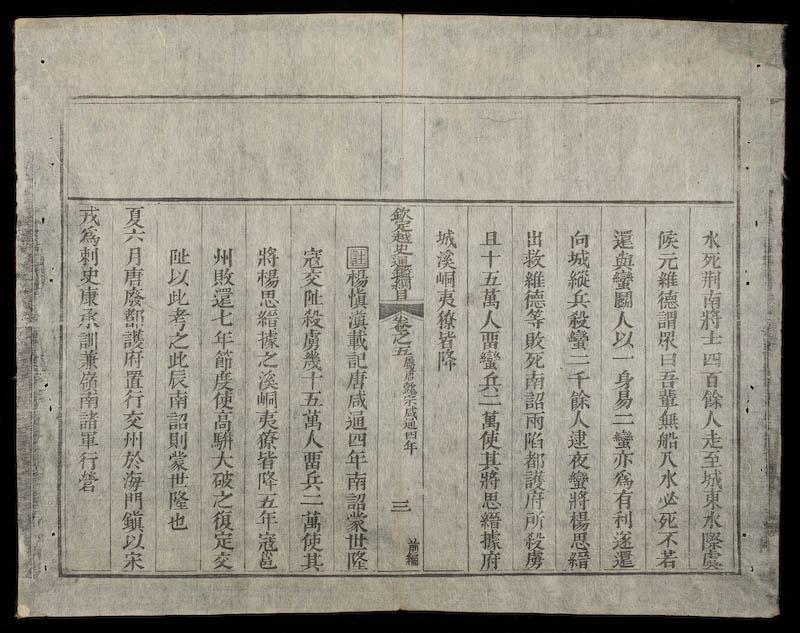 水死荆南將士四百餘人走至城東水際虞
候元維德謂眾曰吾輩無船入水必死不若
還與蠻鬭人以一身易二蠻亦爲有利遂還
向城縱兵殺蠻二千餘人逮夜蠻將楊思縉
出救維德等敗死南詔兩陷都護府所殺虜
且十五萬人畱蠻兵二萬使其將思縉據府
城溪峒夷獠皆降
欽定越史通鑑綱目 卷之五 屬唐懿宗咸通四年 三 前編
註楊愼滇載記唐咸通四年南詔蒙世隆
寇交趾殺虜幾十五萬人畱兵二萬使其
將楊思縉據之溪峒夷獠皆降五年寇邕
州敗還七年節度使高駢大破之復定交
趾以此考之此辰南詔則蒙世隆也
夏六月唐廢都護府置行交州於海門鎭以宋
戎爲刺史康承訓兼嶺南諸軍行營